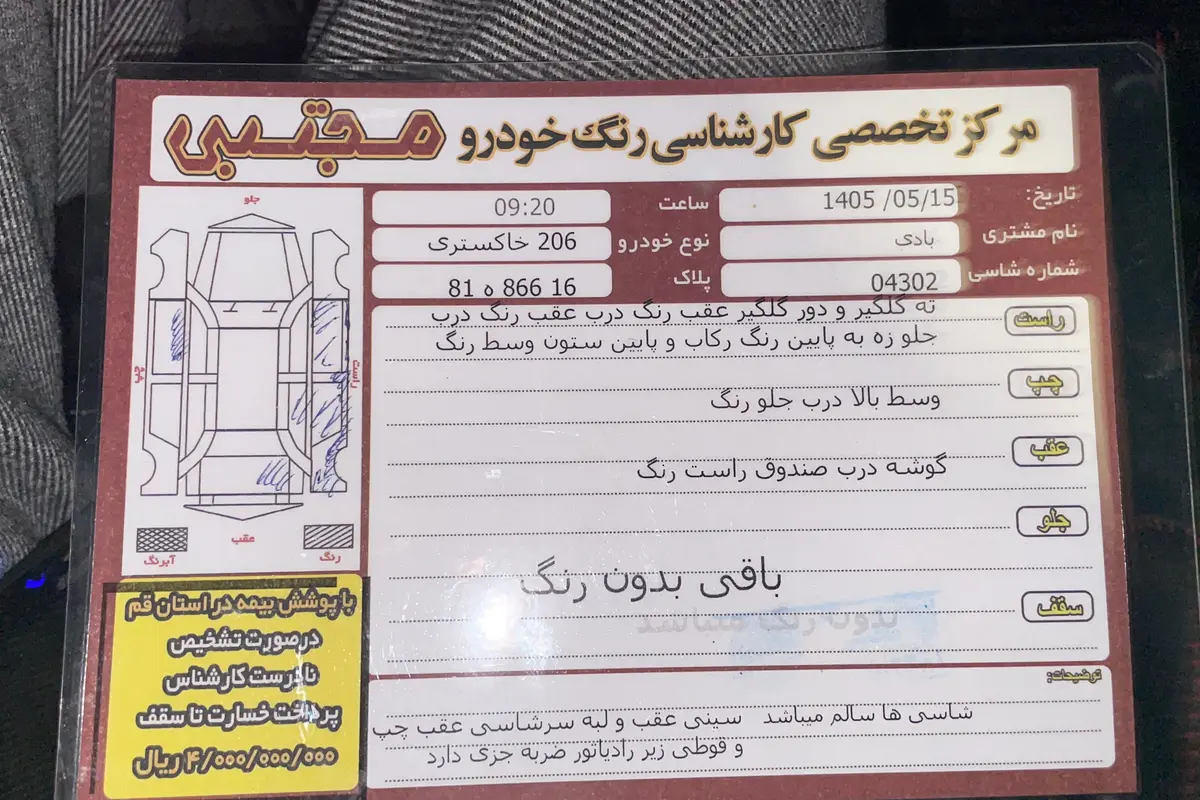 مرکز تخصصی کارشناسی رنگ خودرو مجتبی
تاریخ: 1405 /05/15
ساعت 09:20
نام مشتری بادی
نوع خودرو 206 خاکستری
شماره شاسی 04302
پلاک 16 866 ه 81
راست
ته گلگیر و دور گلگیر عقب رنگ درب عقب رنگ درب
جلو زه به پایین رنگ رکاب و پایین ستون وسط رنگ
چپ
وسط بالا درب جلو رنگ
عقب
گوشه درب صندوق راست رنگ
جلو
باقی بدون رنگ
سقف
بدون رنگ میباشد
توضیحات:
شاسی ها سالم میباشد سینی عقب و لبه سرشاسی عقب چپ
و قوطی زیر رادیاتور ضربه جزی دارد
جلو
راست
چپ
عقب
رنگ
آبرنگ
با پوشش بیمه در استان قم
درصورت تشخیص
نادرست کارشناس
پرداخت خسارت تا سقف
۴/۰۰۰/۰۰۰/۰۰۰ ریال